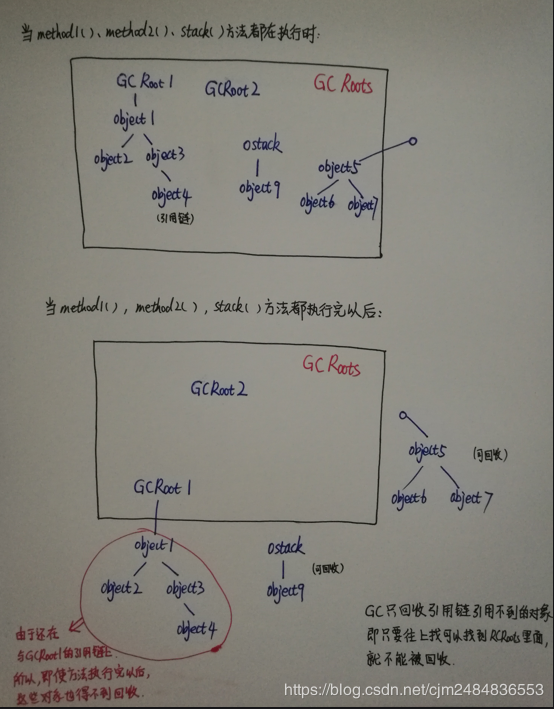 当method1()、method2()、stack()方法都在执行时:
GC Root 1
GCRoot 2
GC Roots
object1
object2
object3
object4
(引用链)
ostack
object9
object5
object6
object7
当method1(), method2(), stack()方法都执行完以后:
GC Roots
GCRoot 2
GCRoot 1
object5
(可回收)
object6
object7
object1
object2
object3
object4
ostack
(可回收)
object9
由于还在
与GCRoot1的引用链上.
所以,即使方法执行完以后,
这些对象也得不到回收.
GC只回收引用链引用不到的对象
即只要往上找可以找到GCRoots里面,
就不能被回收.
https://blog.csdn.net/cjm2484836553